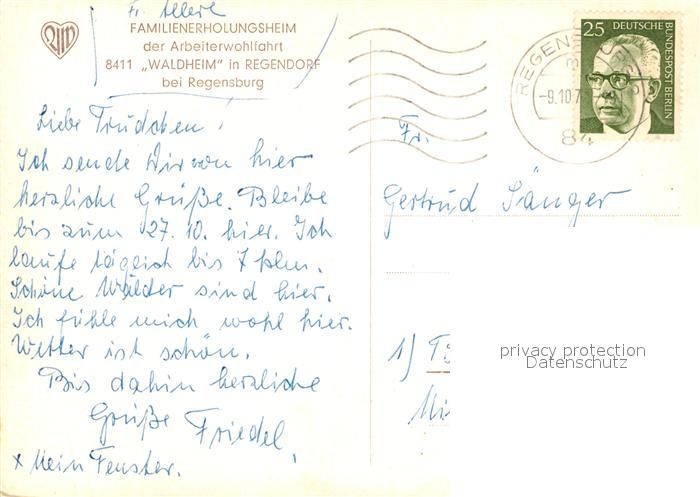 FAMILIENERHOLUNGSHEIM
der Arbeiterwohlfahrt
8411 „WALDHEIM" in REGENDORF
bei Regensburg
25 DEUTSCHE
BUNDESPOST BERLIN
REGENS
-9.10.7
84
Liebe Trudchen!
Ich sende Dir von hier
herzliche Grüße. Bleibe
bis zum 27.10. hier. Ich
laufe täglich bis 7 klm.
Schöne Wälder sind hier.
Ich fühle mich wohl hier.
Wetter ist schön.
Bis dahin herzliche
Grüße Friedel,
x Mein Fenster.
Fr.
Gertrud Sänger
1)
privacy protection
Datenschutz